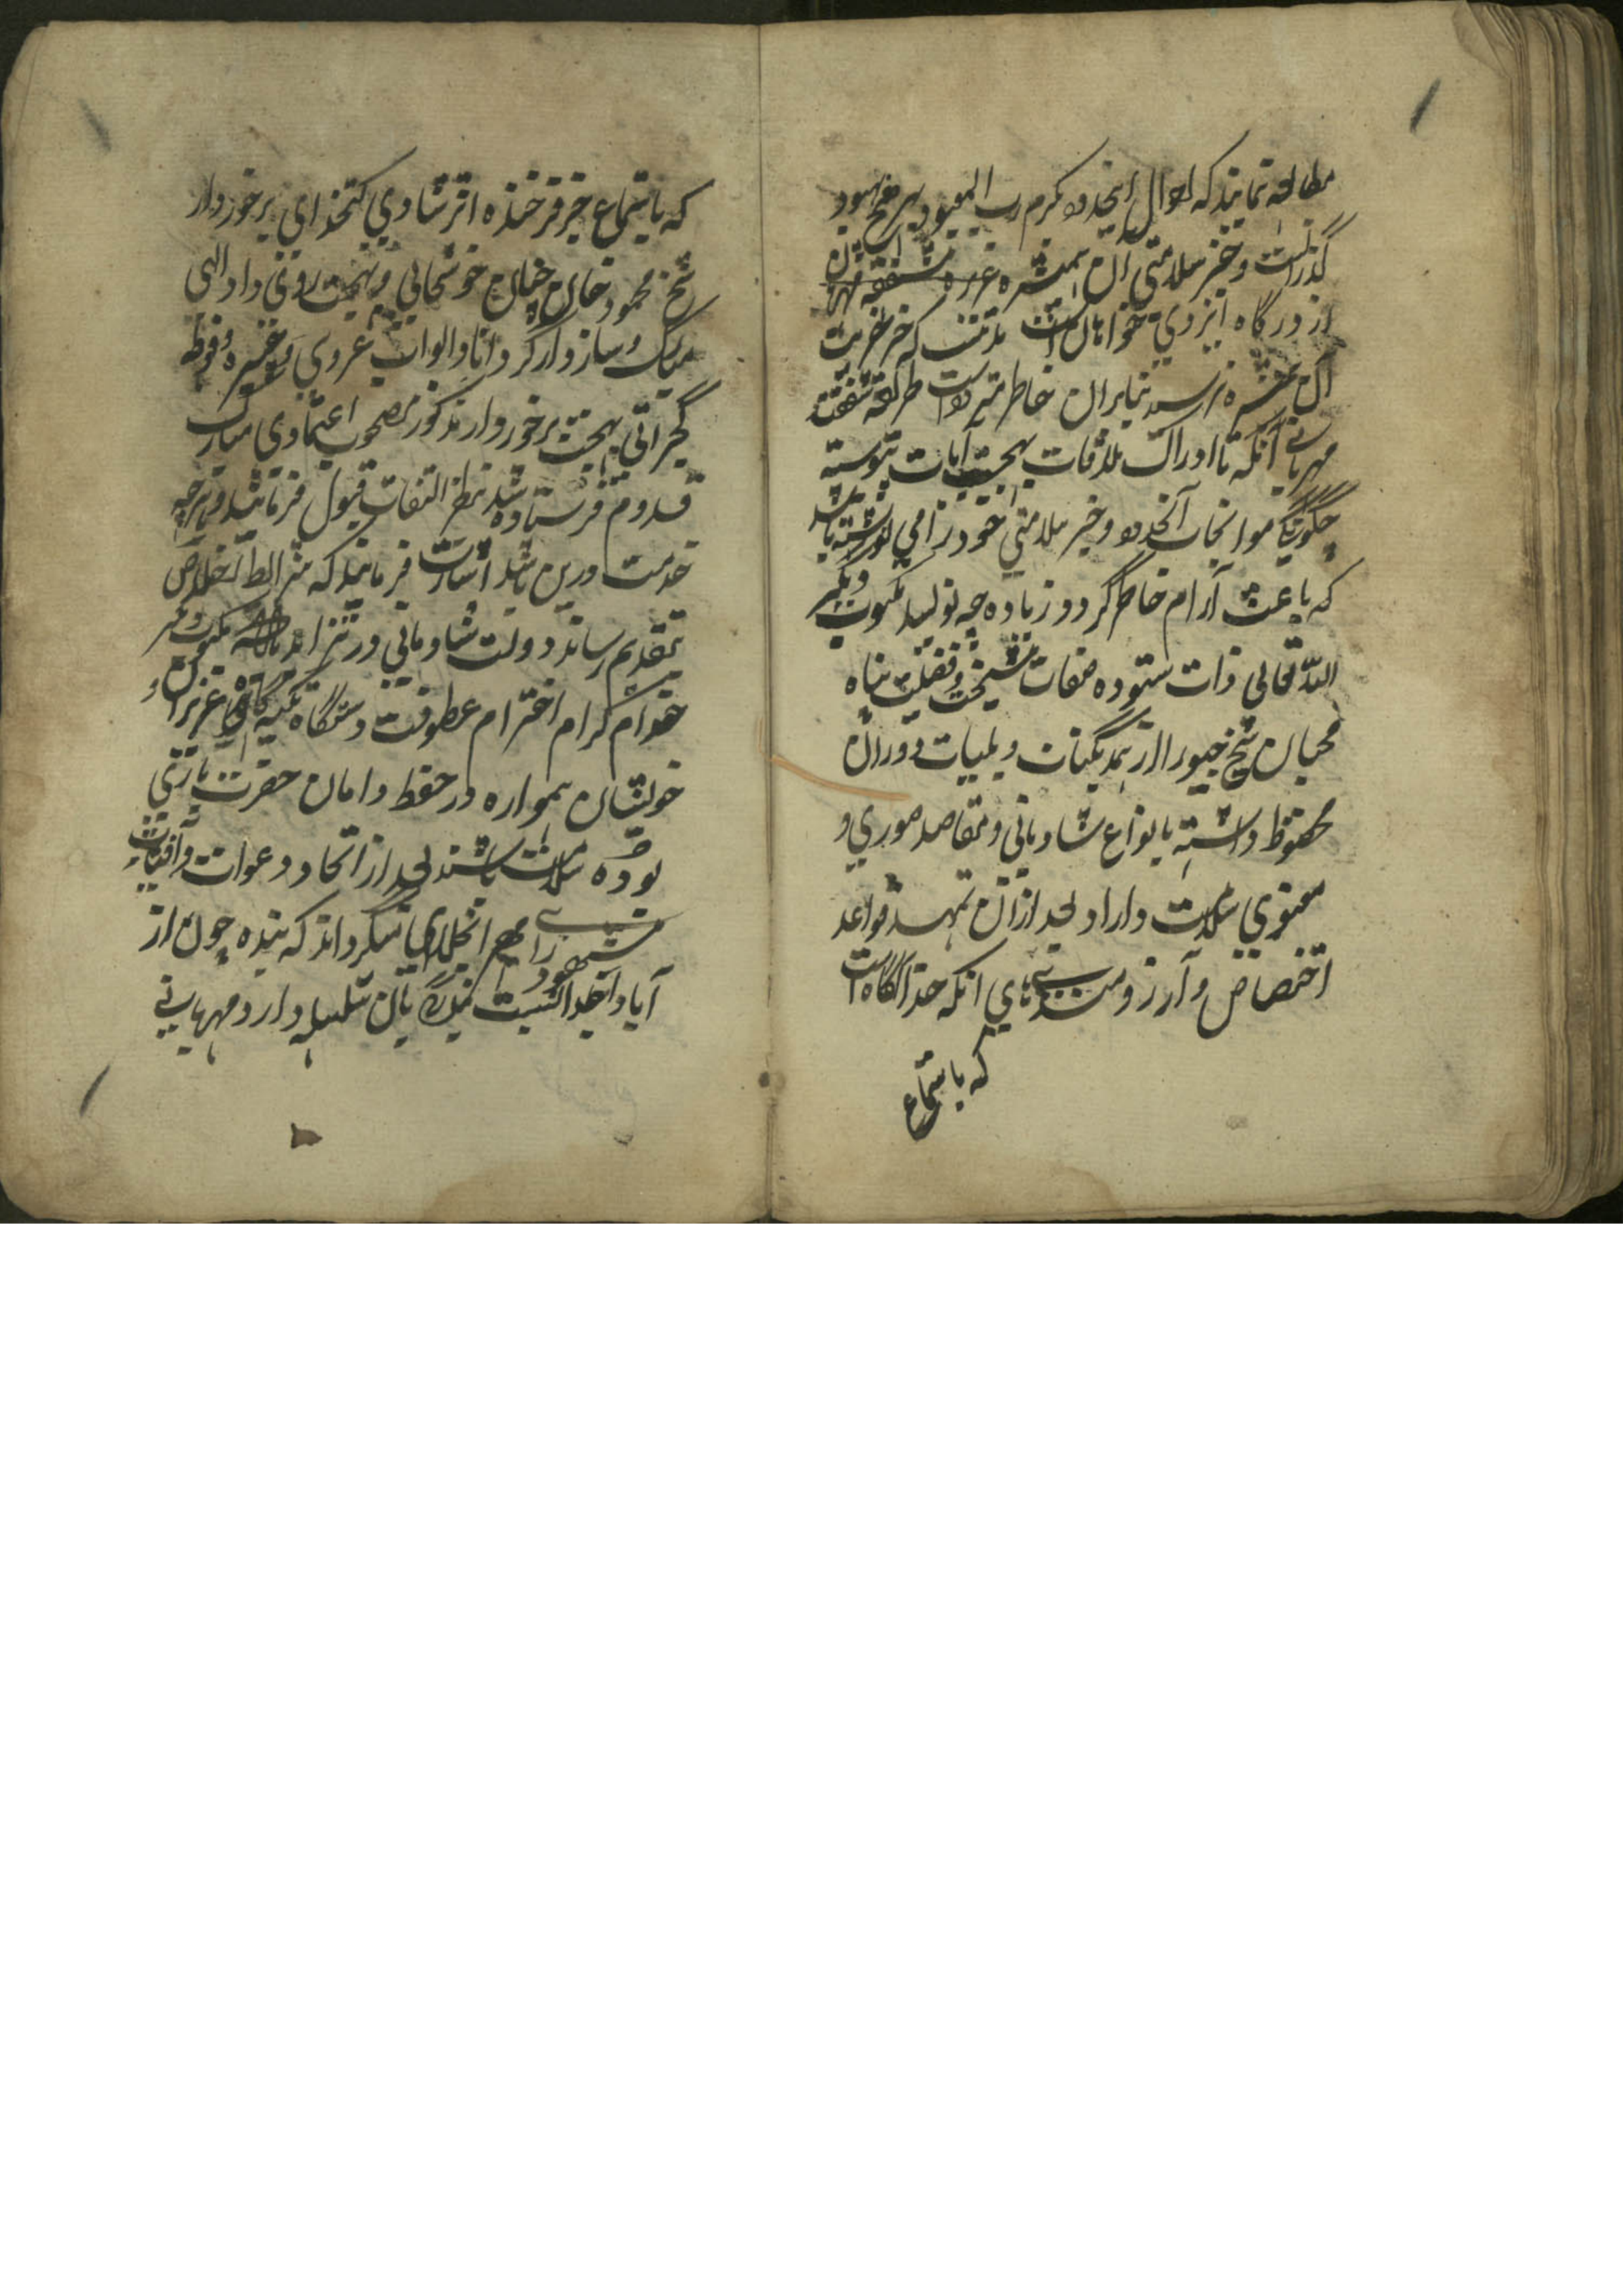 مطالعه نمایند که احوال اینحدود بکرم رب المعبود بر نهج بهبود
گذرانست و خبر سلامتی آن همشیره عزیزه مشفقه مهربان
از درگاه ایزدی خواهان است مدتیست که خبر خیریت
آن همشیره نرسید بنابران خاطر متردد است طریقه شفقت
مهربانی آنکه تا ادراک ملاقات بهجت آیات پیوسته
چگونگی سوانحات آنحدود و خبر سلامتی خود رامی نوشته باشند
که باعث آرام خاطر گردد زیاده چه نویسد مکتوب دیگر
الله تعالی ذات ستوده صفات شیخت و فضیلت پناه
محبان شیخ جیورا از همه نکبات و بلیات دوران
محفوظ داشته بانواع شادمانی و مقاصد صوری و
معنوی سلامت داراد بعد ازان تمهید قواعد
اختصاص و آرزومندیهای آنکه خدا آگاه است
که باستماع
که باستماع خبر فرخنده اثر شادی کتخدای برخوردار
شیخ محمود خان چنان خوشحالی و بهجت روی داد الهی
مبارک و سازوار گرداناد ابواب عروی و غیره و فوطه
گجراتی بهجت برخوردار مذکور مصحوب اعتمادی مبارک
قدوم فرستاده شد بنظر التفات قبول فرمایند و هرچه
خدمت درین باشد اشارت فرمایند که شرایط اخلاص
بتقدیم رساند دولت شادمانی در تزاید باد مکتوب دیگر
خدام کرام احترام عطوفت دستگاه تکیه گاه عزیزان و
خویشان همواره در حفظ و امان حضرت باری
بوده سلامت باشند بعد از اتحاد دعوات وافیات
مشهود رای انجلای میگرداند که بنده چون از
آبا و اجداد نسبت بندگی بآن سلسله دارد و مهربانی